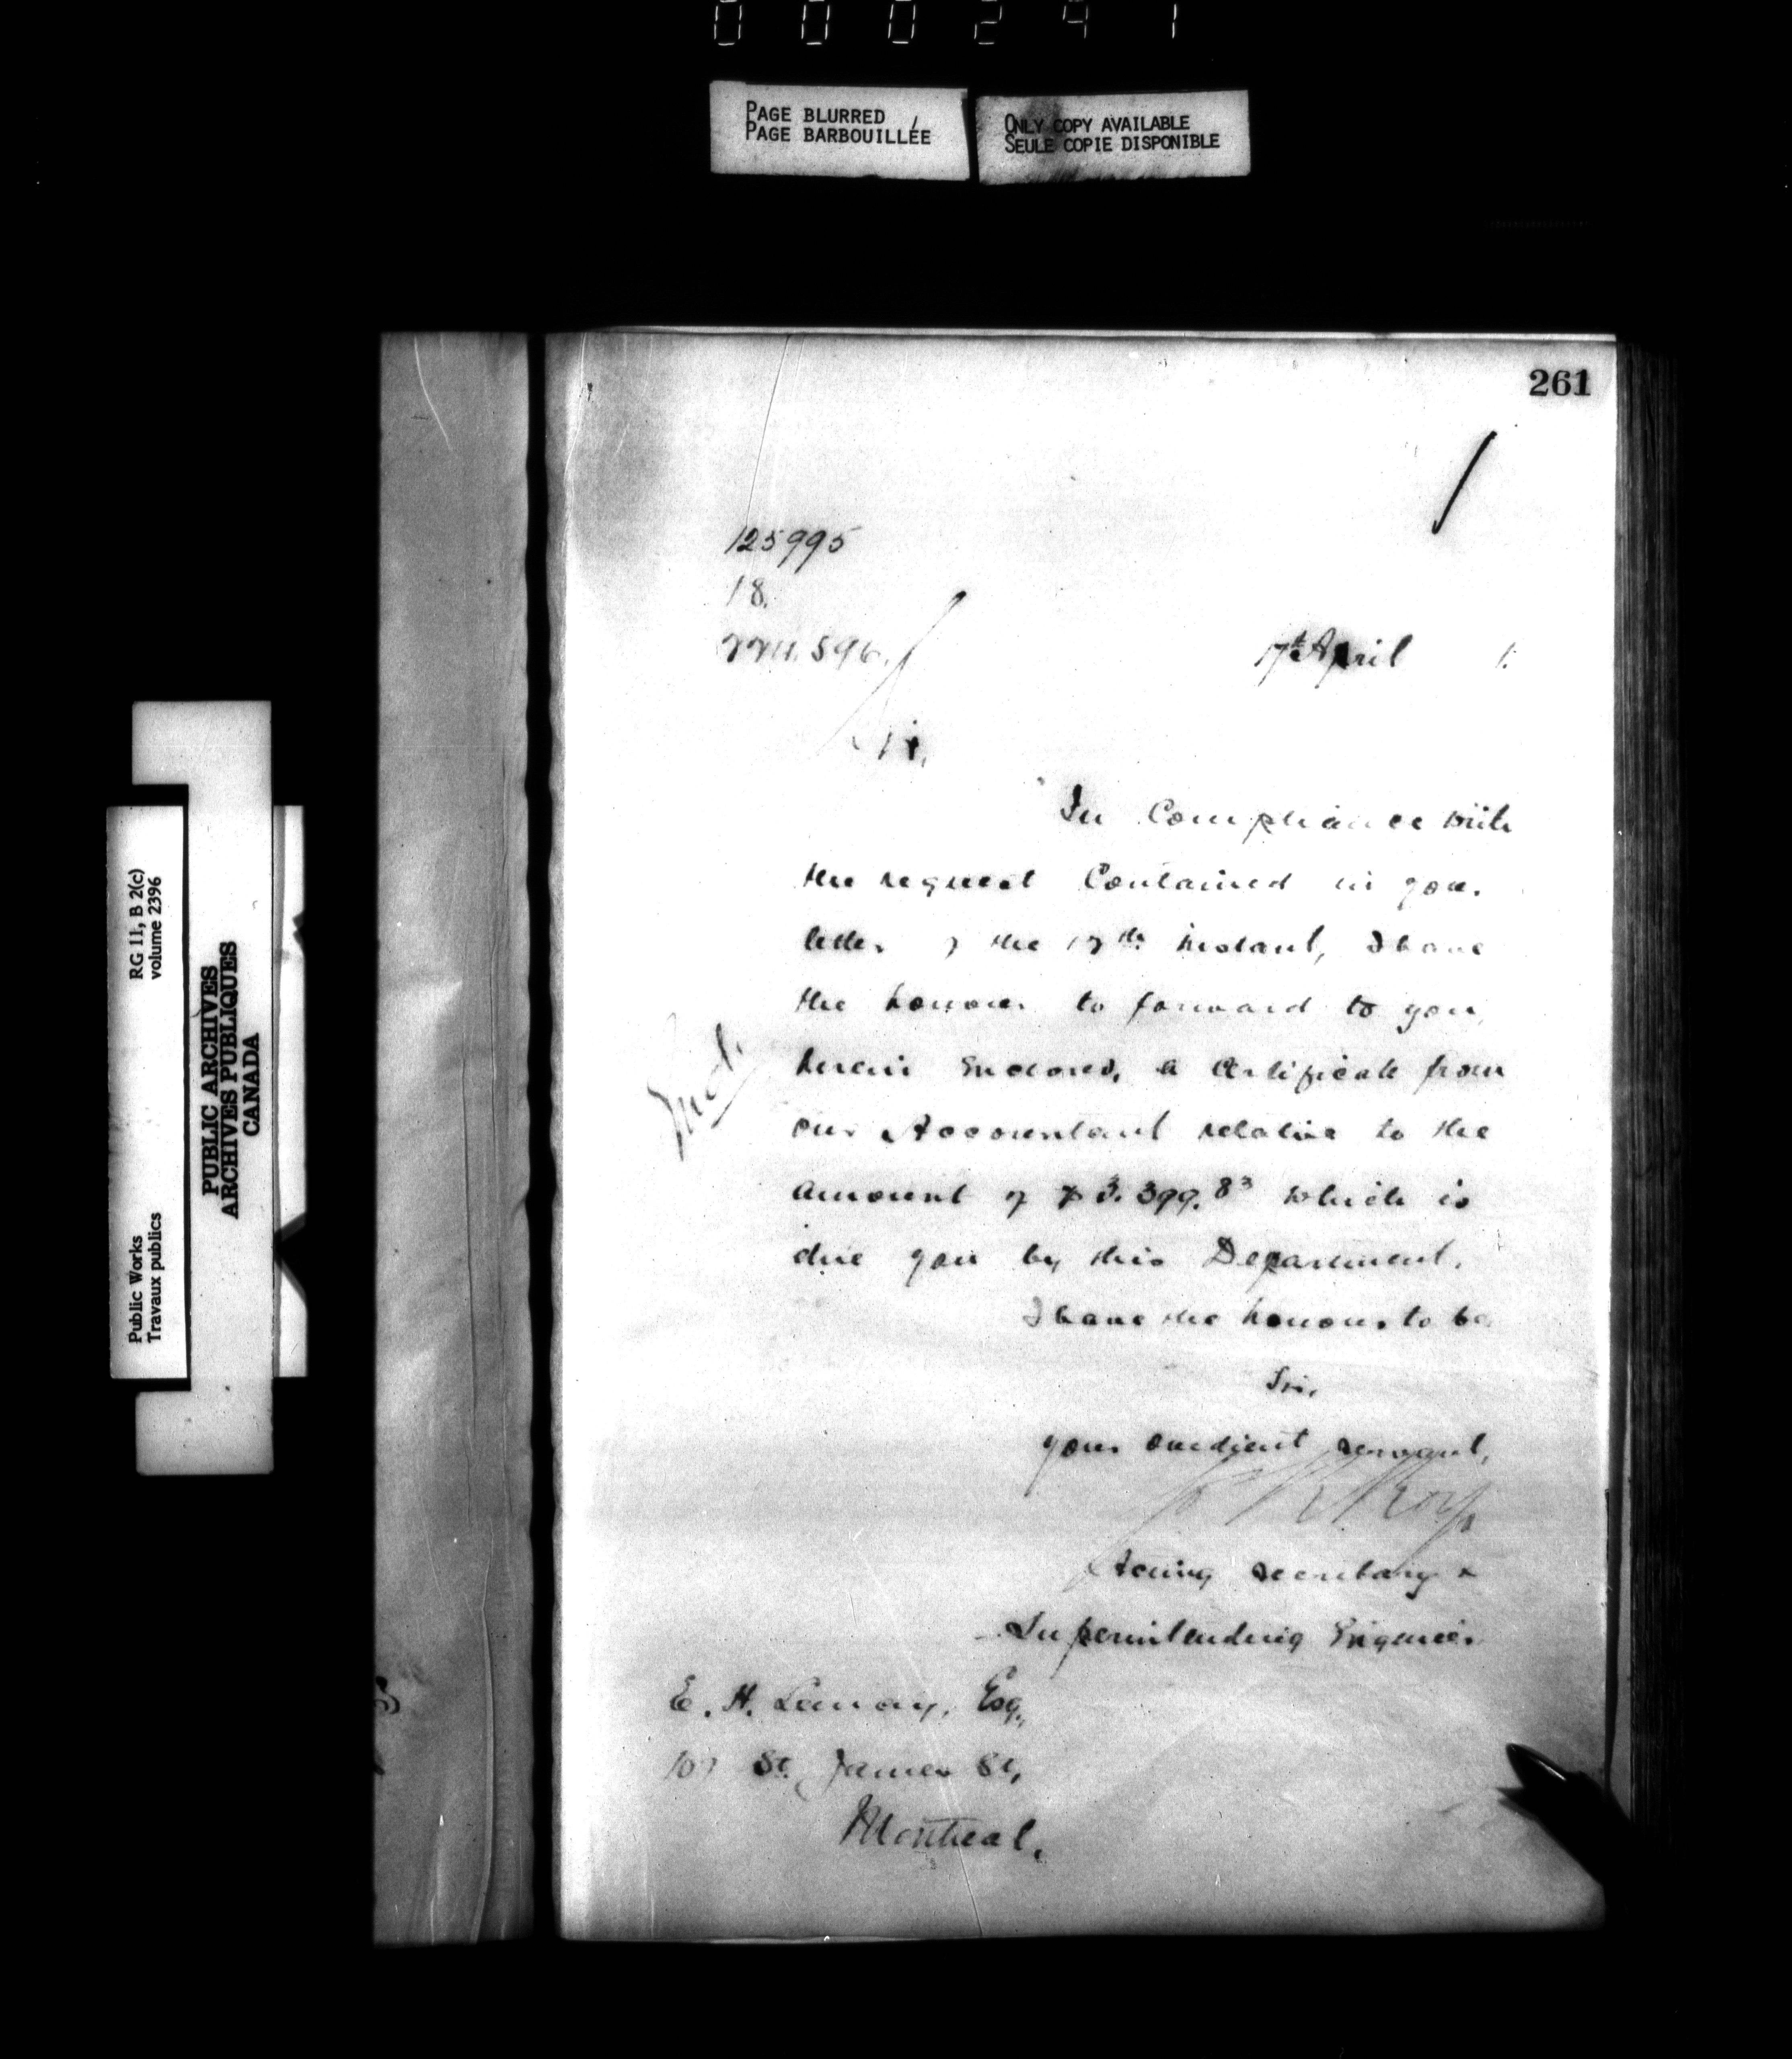 000241
PAGE BLURRED
PAGE BARBOUILLÉE
ONLY COPY AVAILABLE
SEULE COPIE DISPONIBLE
261
125995
18.
17th April 1.
Sir,
In Compliance with
the request Contained in your
letter of the 17th instant, I have
the honour to forward to you,
herein Enclosed, a Certificate from
our Accountant relative to the
amount of $3.399.83 which is
due you by this Department.
I have the honour to be
Sir,
your obedient servant,
Roy
Acting Secretary &
Superintending Engineer
E. H. Lemay, Esq.,
107 St. James St,
Montreal.
Incl.
RG 11, B 2(c)
volume 2396
Public Works
Travaux publics
PUBLIC ARCHIVES
ARCHIVES PUBLIQUES
CANADA